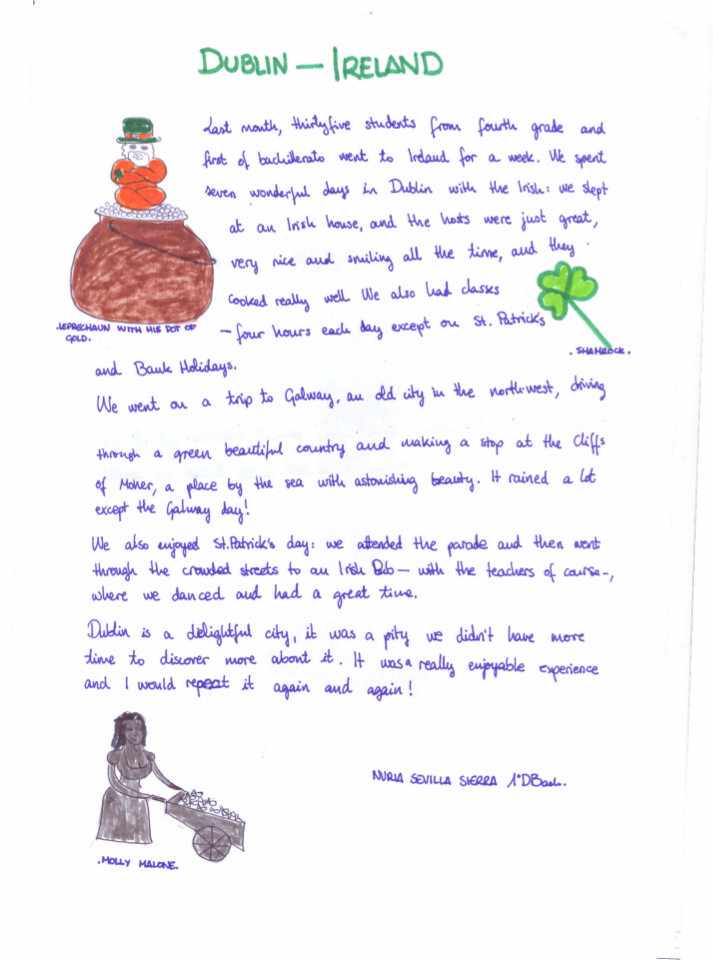 DUBLIN — IRELAND
Last month, thirtyfive students from fourth grade and
first of bachillerato went to Ireland for a week. We spent
seven wonderful days in Dublin with the Irish: we slept
at an Irish house, and the hosts were just great,
very nice and smiling all the time, and they
cooked really well. We also had classes
- four hours each day except on St. Patrick's
.LEPRECHAUN WITH HIS POT OF
GOLD.
. SHAMROCK.
and Bank Holidays.
We went on a trip to Galway, an old city in the north-west, driving
through a green beautiful country and making a stop at the Cliffs
of Moher, a place by the sea with astonishing beauty. It rained a lot
except the Galway day!
We also enjoyed St.Patrick's day: we attended the parade and then went
through the crowded streets to an Irish Pub — with the teachers of course-,
where we danced and had a great time.
Dublin is a delightful city, it was a pity we didn't have more
time to discover more about it. It was a really enjoyable experience
and I would repeat it again and again!
NURIA SEVILLA SIERRA 1ºDBach.
.MOLLY MALONE.